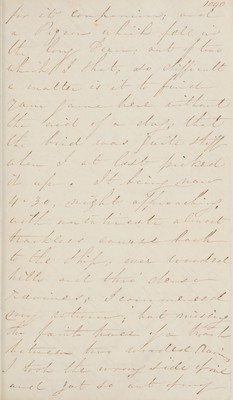 1890
for its companions, and
a Pigeon which fell in
the long Fern, out of two
which I shot, so difficult
a matter is it to find
game here without
the aid of a dog, that
the bird was quite stiff
when I at last picked
it up. It being now
4.30, night approaching,
with an intricate almost
trackless course back
to the Ship, over wooded
hills and thro dense
ravines, I commenced
my return, but missing
the faint trace of a track
between two wooded
I took the wrong side
and got so